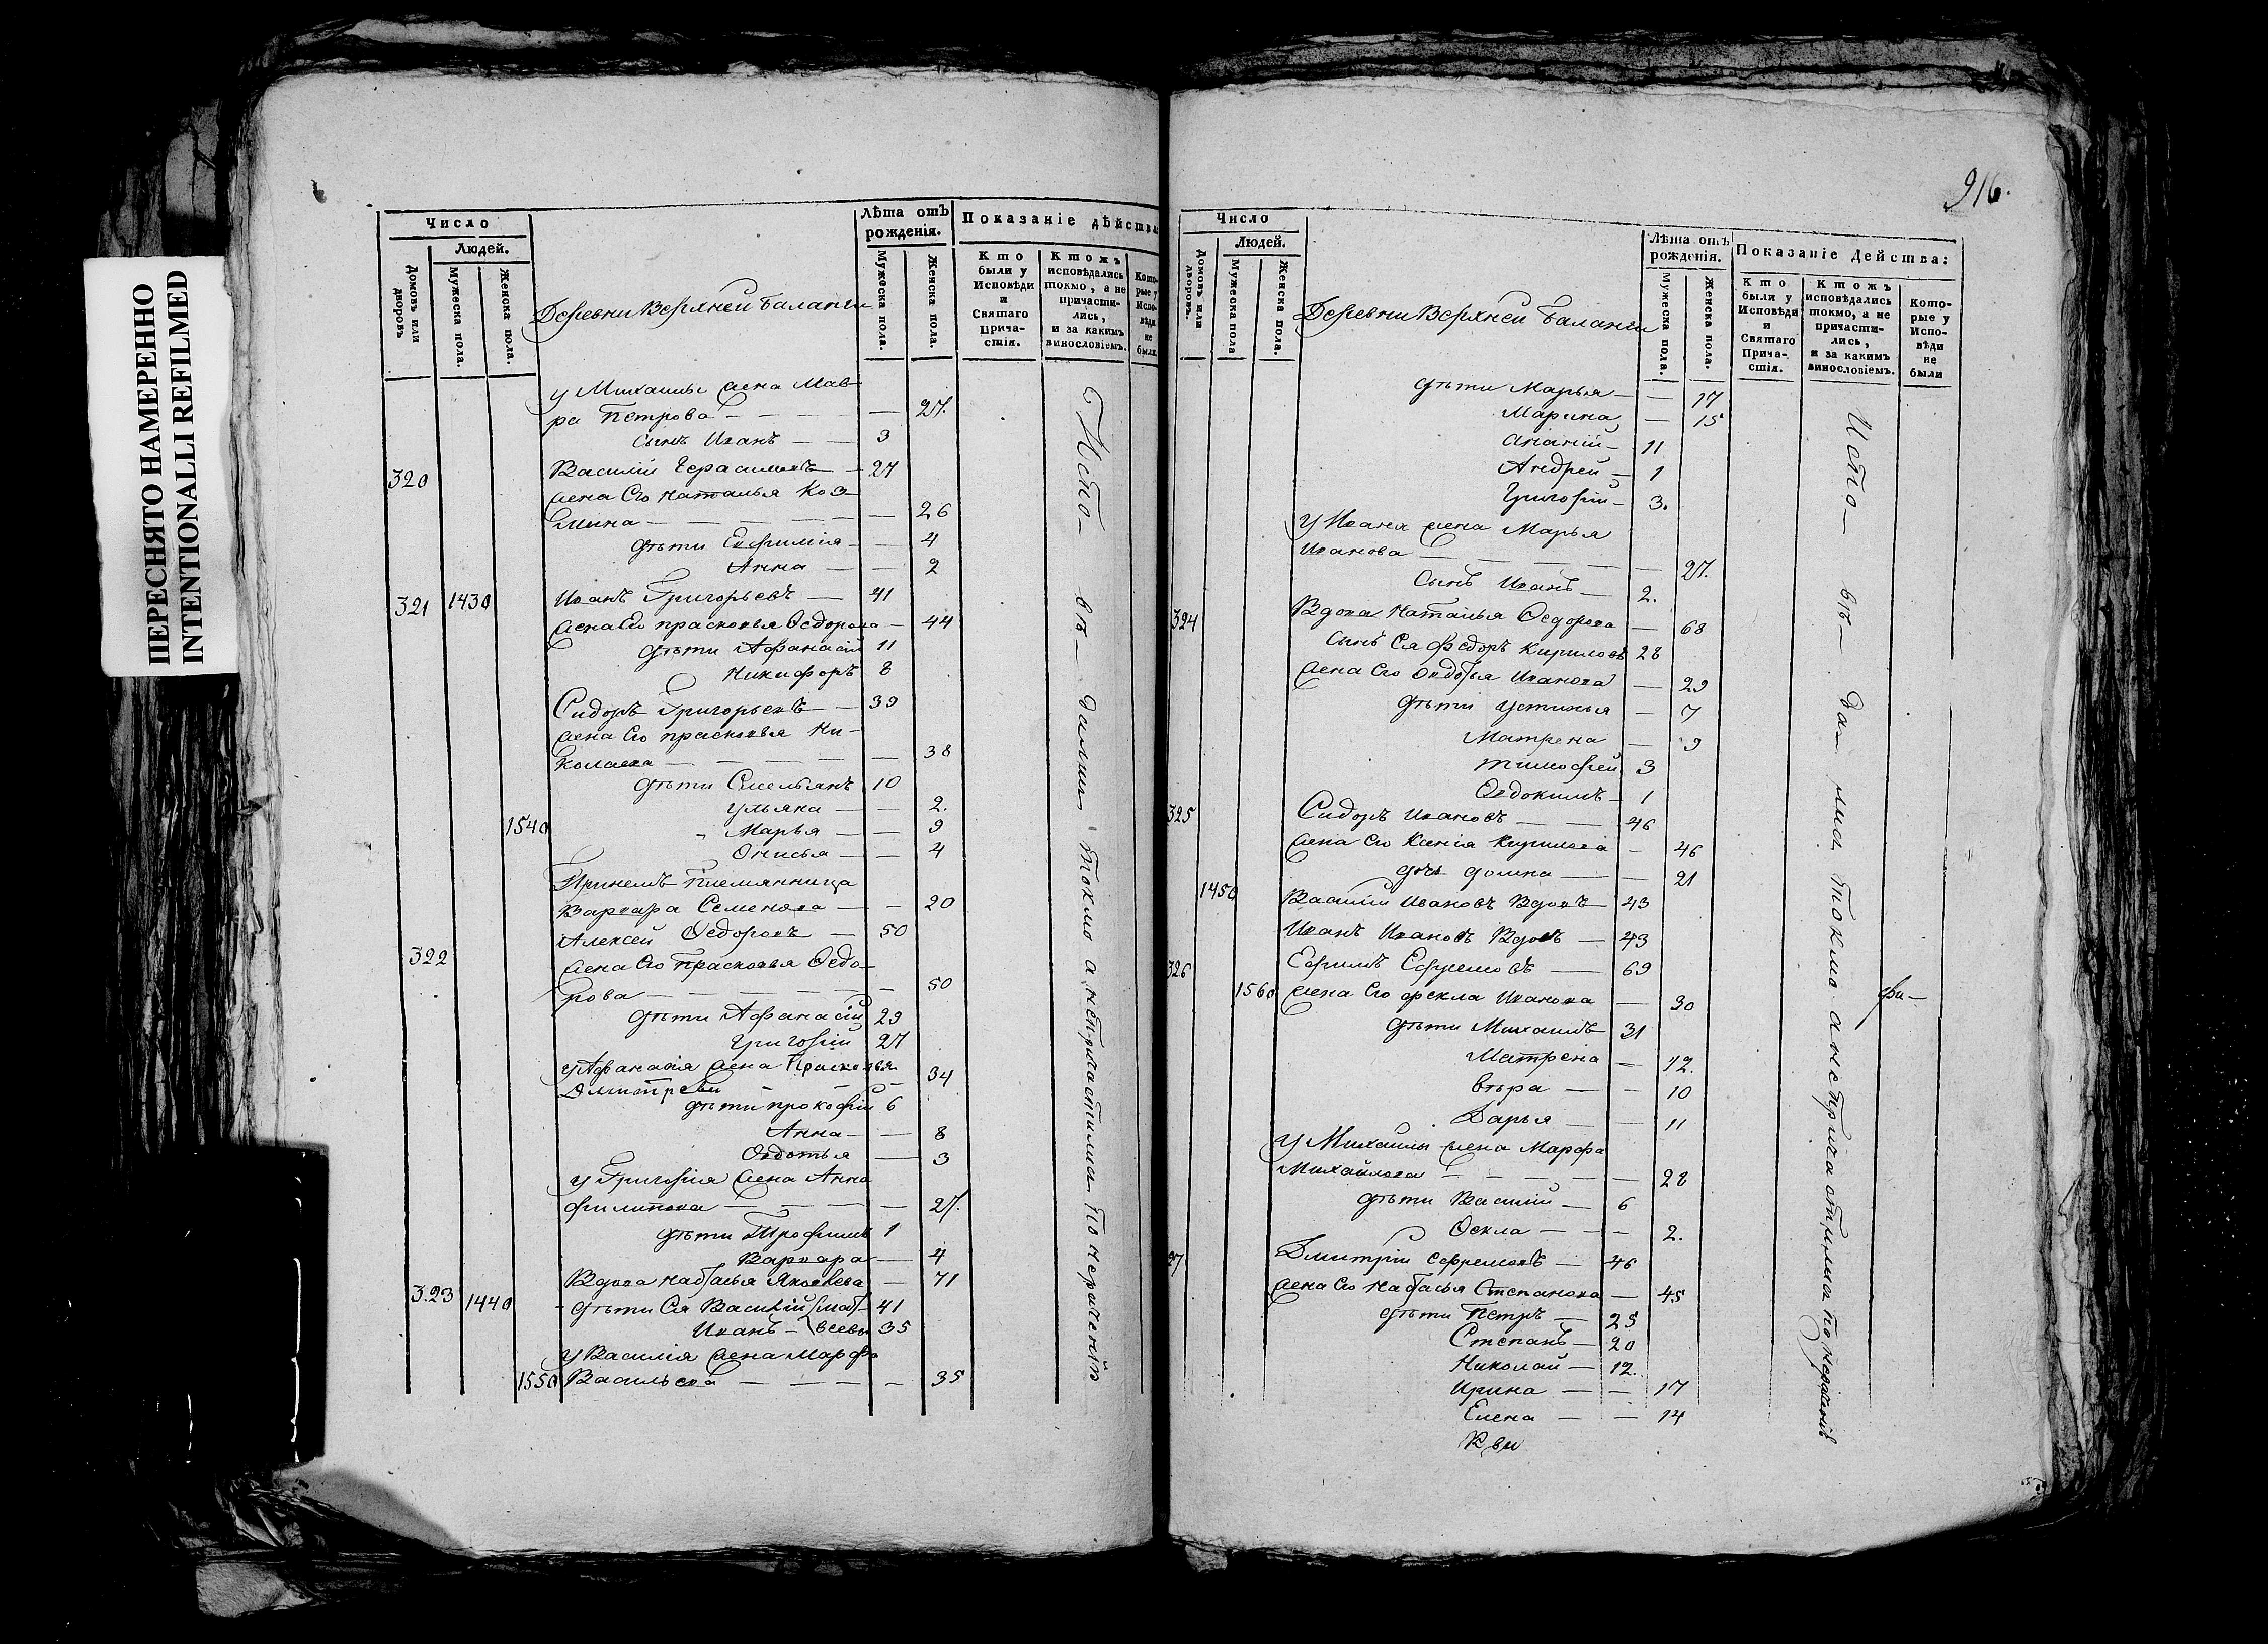 ПЕРЕСНЯТО НАМЕРЕННО
INTENTIONALLI REFILMED
Число
Людей.
Домовъ или дворовъ
Мужеска пола.
Женска пола.
Деревни Верхней Баланги
Лѣта отъ рожденія.
Мужеска пола.
Женска пола.
Показаніе дѣйства
Кто были у Исповѣди и Святаго Прича-стія.
Ктожъ исповѣдались токмо, а не причасти-лись, и за какимъ винословіемъ.
Кото-рые у Испо-вѣди не были
у Михаилы жена Мав-
ра Петрова — — — — 27.
сынъ Иванъ — — 3
320 Василій Герасимовъ — 27
жена Его Наталья Коз-
мина — — — — 26
дѣти Евфимія — — 4
Анна — — 2
321 1430 Иванъ Григорьевъ — 41
жена Его прасковья Ѳедорова — 44
дѣти Афанасій 11
Никифоръ 8
Сидоръ Григорьевъ — 39
жена Его прасковья Ни-
колаева — — — — 38
дѣти Емельянъ 10
Ульяна — — 2.
1540 Марья — — 9
Онисья — — 4
При немъ племянница
Варвара Семенова — — 20
322 Алексей Ѳедоровъ — 50
жена Его Прасковья Ѳедо-
рова — — — — — 50
дѣти Афанасій 29
Григорій 27
у Афанасія жена Прасковья
Дмитреви — — — 34
дѣти прокофій 6
Анна — — 8
Овдотья — 3
у Григорія жена Анна
филипова — — — — 27.
дѣти Трофимъ 1
Варвара — 4
Вдова Настасья Яковлева — 71
323 1440 дѣти Ея Василій 41
Иванъ — 35
у Василія жена Марфа
1550 Васильева — — — — 35
Испо — вѣ — дались токмо а непричастились по нераченію
916.
Число
Людей.
Домовъ или дворовъ.
Мужеска пола
Женска пола.
Деревни Верхней Баланги
Лѣта отъ рожденія.
Мужеска пола.
Женска пола.
Показаніе Действа:
Кто были у Исповѣди и Святаго Прича-стія.
Ктожъ исповѣдались токмо, а не причасти-лись, и за какимъ винословіемъ.
Кото-рые у Испо-вѣди не были
дѣти Марья — — 17
Марина — 15
Ананій — 11
Андрей — 1
Григорій — 3.
у Ивана жена Марья
Иванова — — — — — 27.
Сынъ Иванъ — 2.
324 Вдова Наталья Ѳедорова — 68
сынъ Ея Федоръ Кириловъ 28
жена Его Овдотья Иванова — 29
дѣти Устинья — 7
Матрена — 9
тимофей 3
Овдокимъ — 1
325 Сидоръ Ивановъ — — 46
жена Его Ксенія Кирилова — 46
дочь домна — — 21
1450 Василій Ивановъ Вдовъ — 43
Иванъ Ивановъ Вдовъ — 43
326 Ефимъ Ефремовъ — 69
1560 жена Его фекла Иванова — 30
дѣти Михаилъ 31
Матрена — 12.
Вѣра — — 10
Дарья — — 11
у Михаилы жена Марфа
Михайлова — — — — — 28
дѣти Василій — 6
Ѳекла — — — 2.
27 Дмитрій Ефремовъ — 46
жена Его Настасья Степанова — 45
дѣти Петръ — 25
Степанъ — 20
Николай — 12.
Ирина — — 17
Елена — — 14
Испо — вѣ — дались токмо а непричастились по нераченію